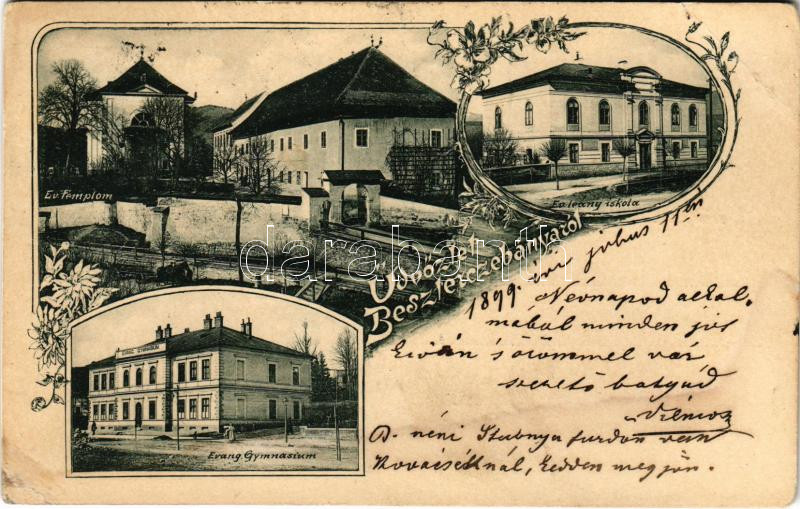 Ev. Templom
Ev. leány iskola
Üdvözlet
Beszterczebányáról
EVANG. GYMNASIUM
Evang. Gymnasium
darabanth
1899. évi július 11én
Névnapod alkal-
mából minden jót
kíván s örömmel vár
szerető bátyád
Vilmos
B. néni Stubnya fürdőn van
Kovácséknál, kedden megjön.